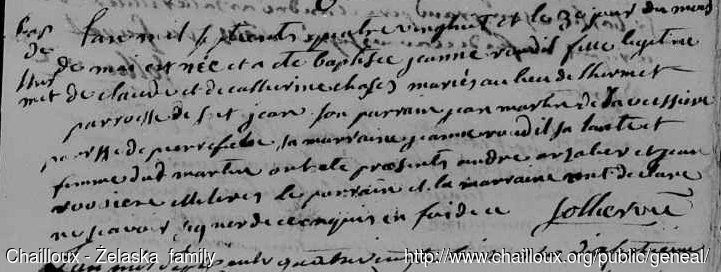 Bap
de
Lhermet
L'an mil sept cents quatre vingt huit et le 30 jour du mois
de mai est née et a eté baptisée jeanne roudil fille legitime
de claude et de catherine chases mariés au lieu de lhermet
parroisse de st jean son parrain jean martin de la
parsse de pierrefiche sa marraine jeanne roudil sa tante et
femme dud martin ont eté presents andre et jean
le parrain et la marraine ont declaré
ne scavoir signer de ce enquis en foi de ce
Chailloux - Żelaska family
http://www.chailloux.org/public/geneal/